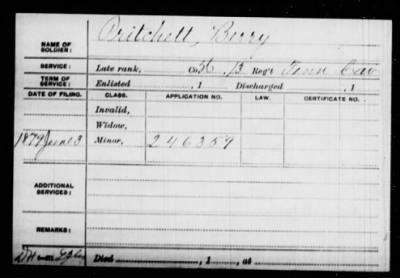 NAME OF SOLDIER: Pritchett, Berry
SERVICE: Late rank, Co. 13 Reg't Tenn Cav
TERM OF SERVICE: Enlisted , 1 Discharged , 1
DATE OF FILING. CLASS. APPLICATION NO. LAW. CERTIFICATE NO.
Invalid,
Widow,
1879 June 3 Minor, 246359
ADDITIONAL SERVICES:
REMARKS:
Died , 1 , at